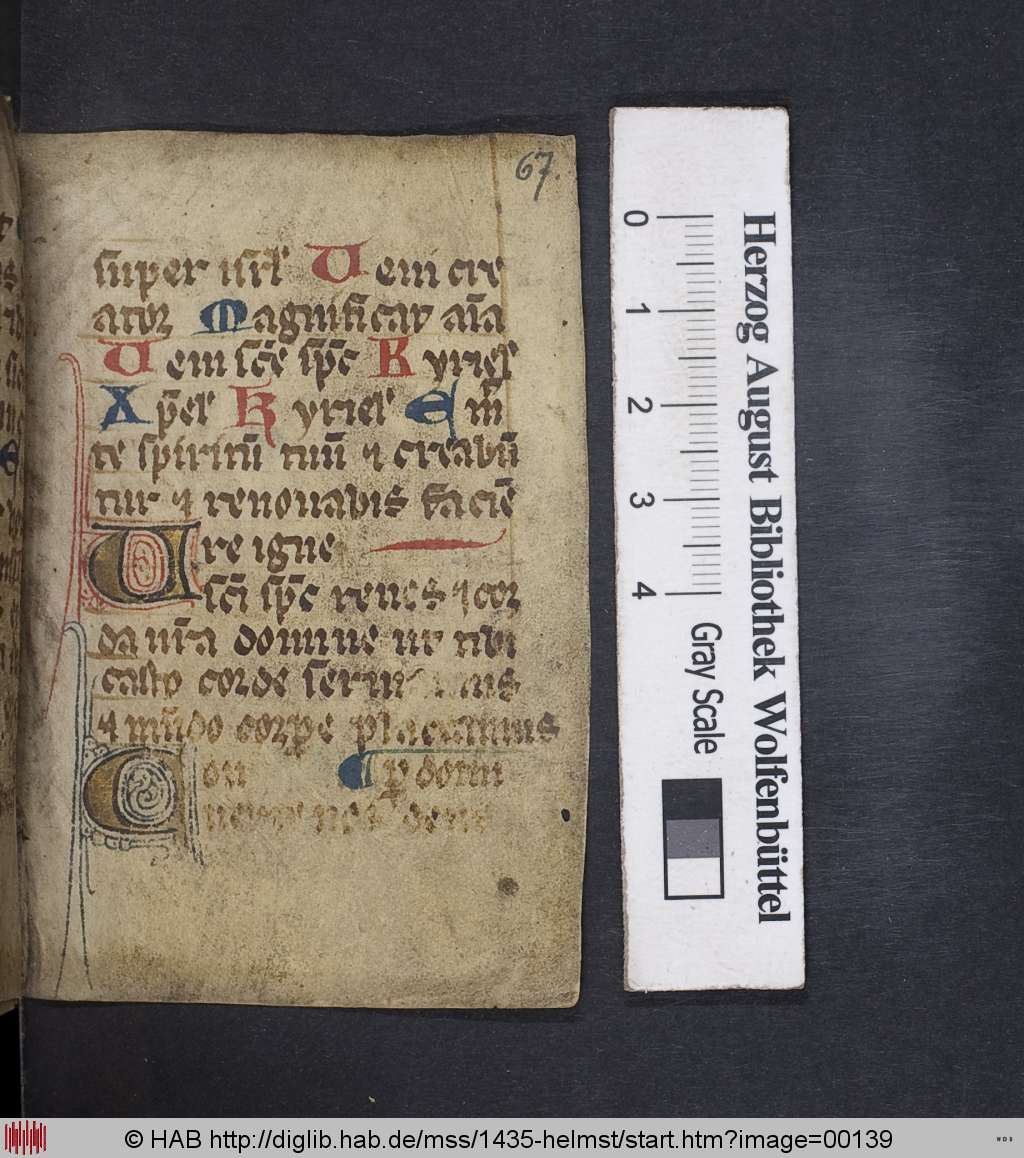 67.
super isrl̄ Veni cre
ator Magnificat aīa
Veni scē spc̄ Kyriel
Xpēl Kyriel Emit
te spiritū tuū ⁊ creabū
tur ⁊ renouabis faciē
Ure igne
scī spc̄ renes ⁊ cor
da nr̄a domine ut tibi
casto corde
⁊ mūdo corpe placeamus
domi
deus
0 1 2 3 4
Gray Scale
Herzog August Bibliothek Wolfenbüttel
© HAB http://diglib.hab.de/mss/1435-helmst/start.htm?image=00139